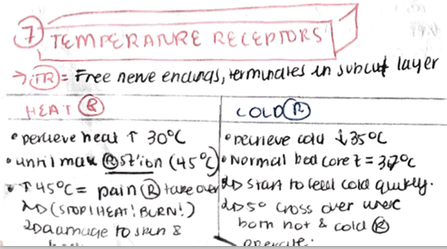 7 TEMPERATURE RECEPTORS
→ TR = Free nerve endings, terminates in subcut layer
HEAT R
• percieve heat ↑ 30°C
• until max R stion (45°C)
• ↑ 45°C = pain R take over
(STOP! HEAT! BURN!)
damage to skin &
COLD R
• percieve cold ↓ 35°C
• Normal bod core t = 37°C
start to feel cold quickly.
5° cross over where
both hot & cold R
operate.